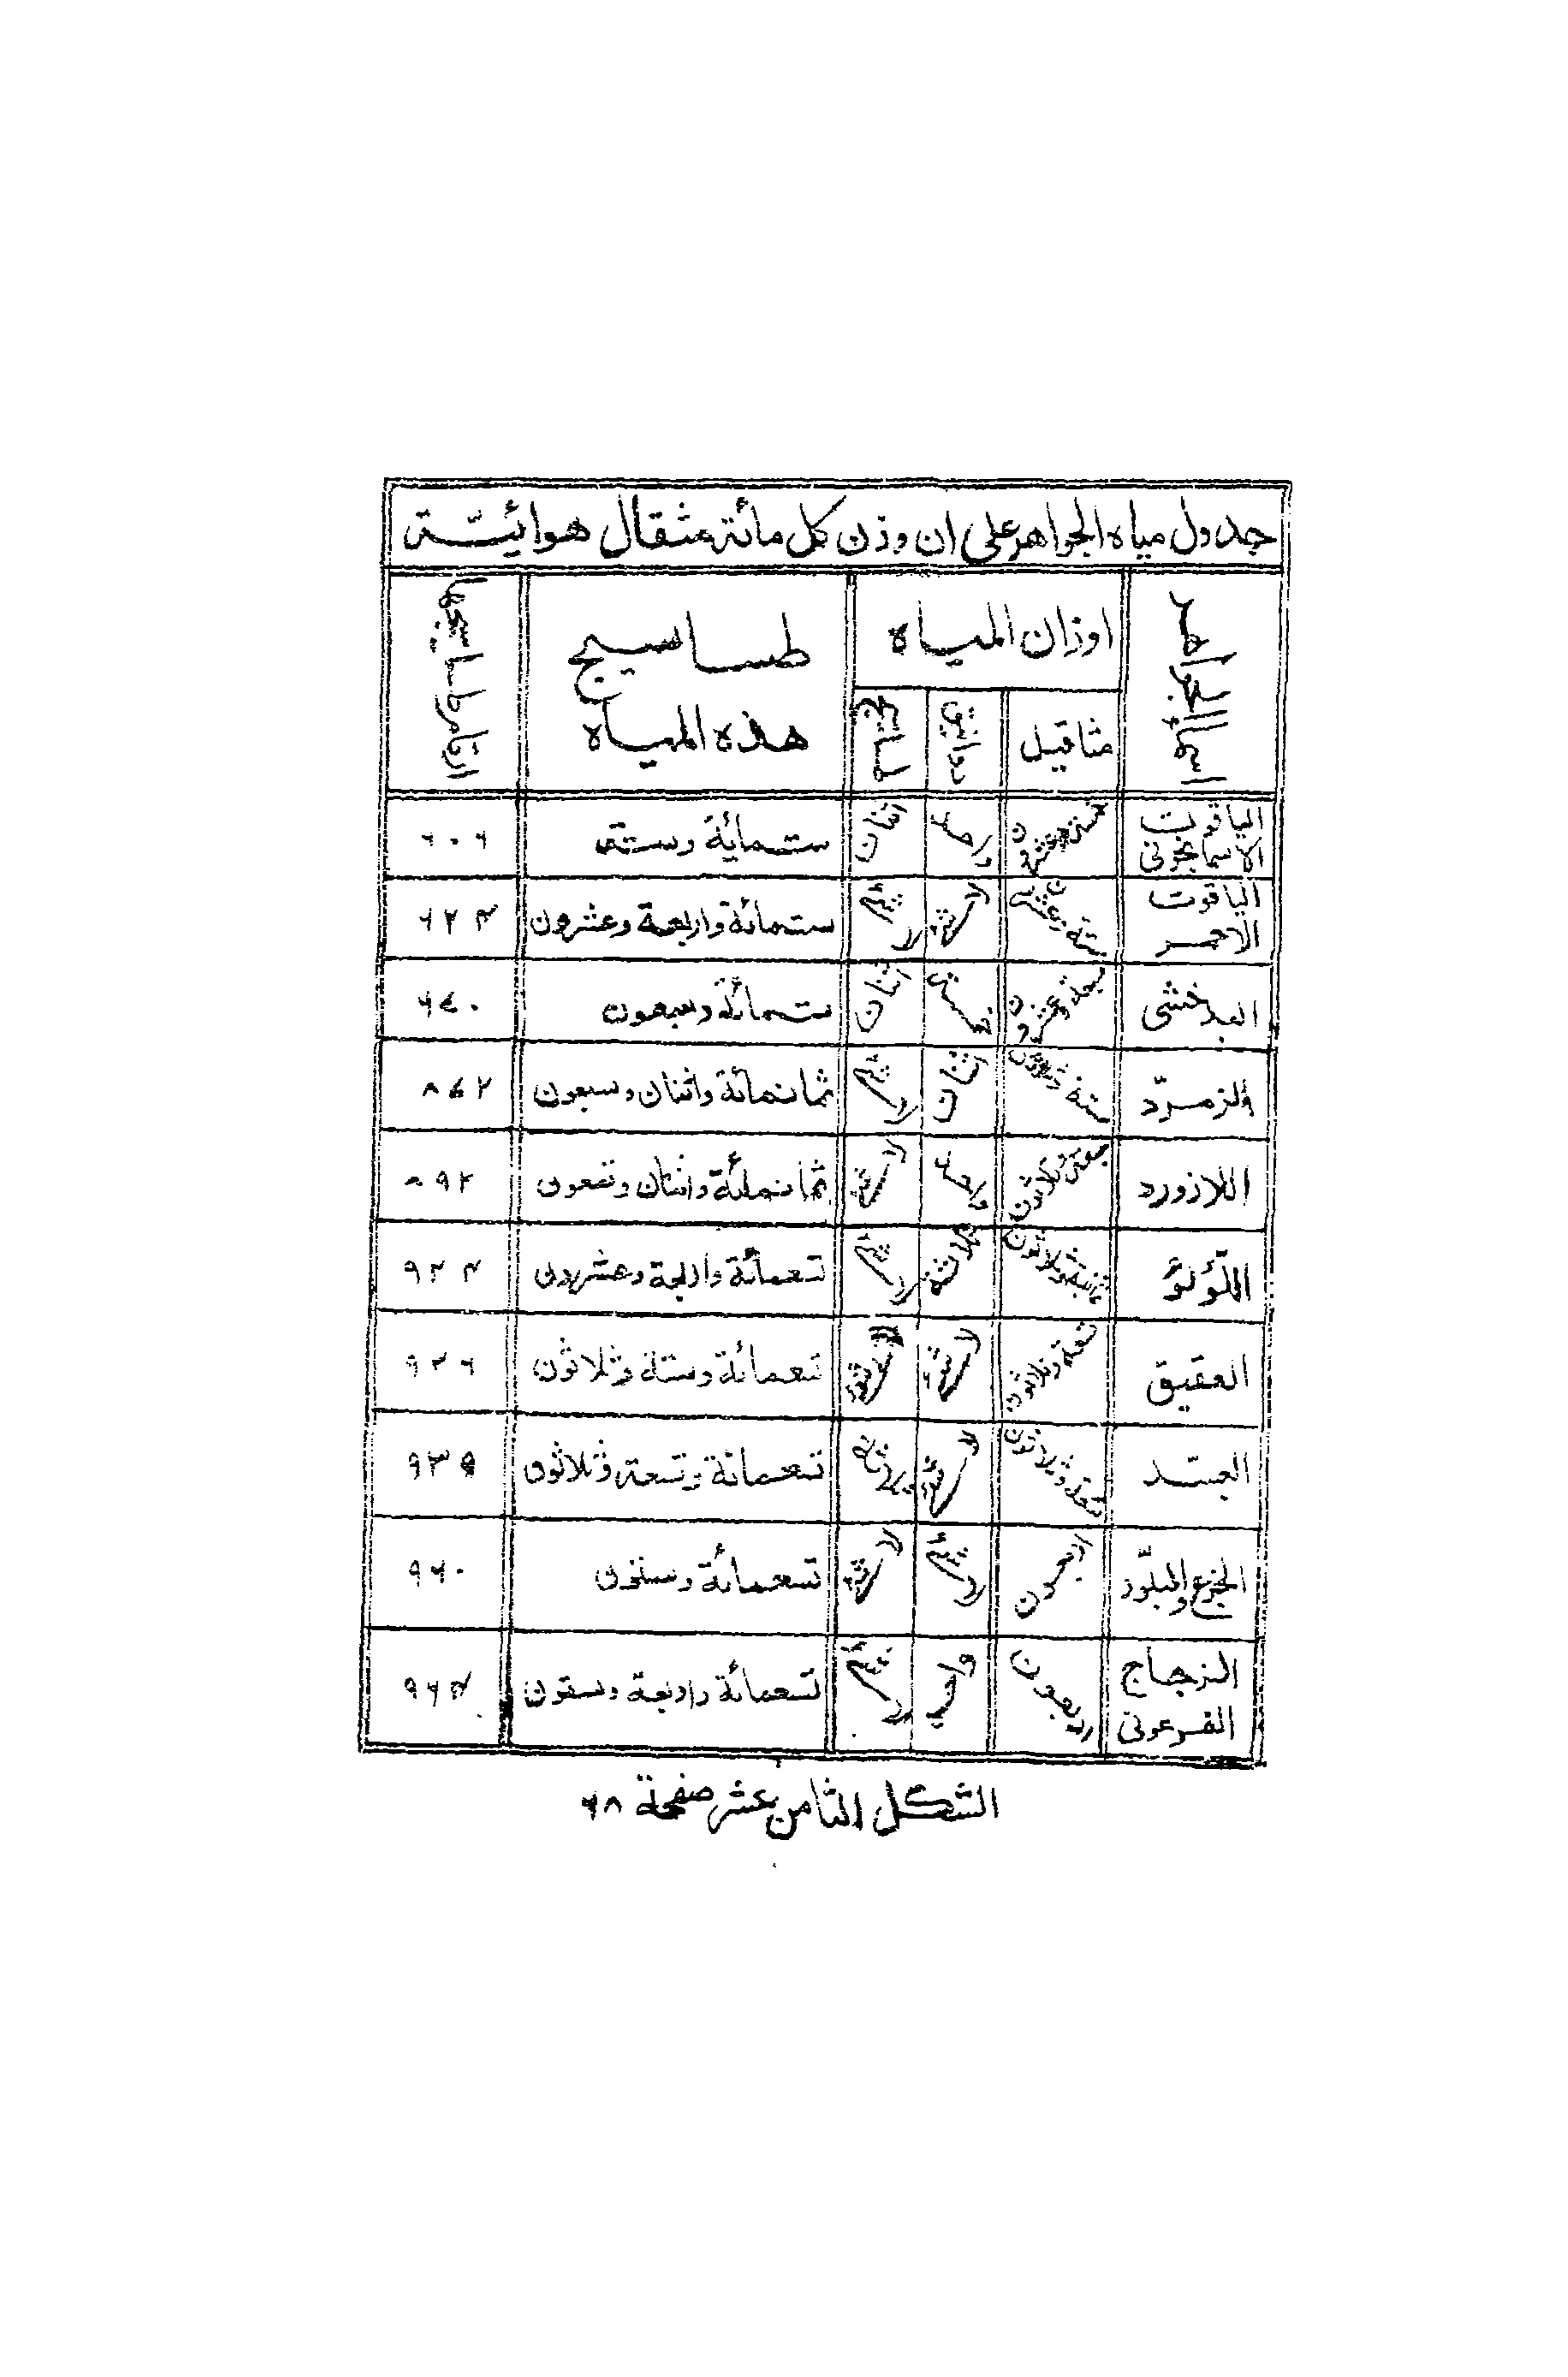 جدول مياه الجواهر على ان وزن كل مائة مثقال هوائيّة
اسماء الجواهر
اوزان المياه
طساسيج هذه المياه
ارقام طساسيجها
مثاقيل
دوانيق
طساسيج
الياقوت الاسمانجونى خمسة وعشرون واحد اثنان ستمائة وستة ٦٠٦
الياقوت الاحمر ستة وعشرون لا شئ لا شئ ستمائة واربعة وعشرون ٦٢۴
البدخشى سبعة وعشرون خمسة اثنان ستمائة وسبعون ٦٧٠
الزمرّد ستة وثلاثون اثنان لا شئ ثمانمائة واثنان وسبعون ٨٧٢
اللازورد سبعة وثلاثون واحد لا شئ ثمانمائة واثنان وتسعون ٨٩٢
اللّؤلؤ ثمانية وثلاثون ثلاثة لا شئ تسعمائة واربعة وعشرون ٩٢۴
العقيق تسعة وثلاثون لا شئ لا شئ تسعمائة وستة وثلاثون ٩٣٦
البسّد تسعة وثلاثون لا شئ ثلاثة تسعمائة وتسعة وثلاثون ٩٣٩
الجزع والبلّور اربعون لا شئ لا شئ تسعمائة وستون ٩٦٠
الزجاج الفرعونى اربعون واحد لا شئ تسعمائة واربعة وستون ٩٦۴
الشكل الثامن عشر صفحة ٦٨